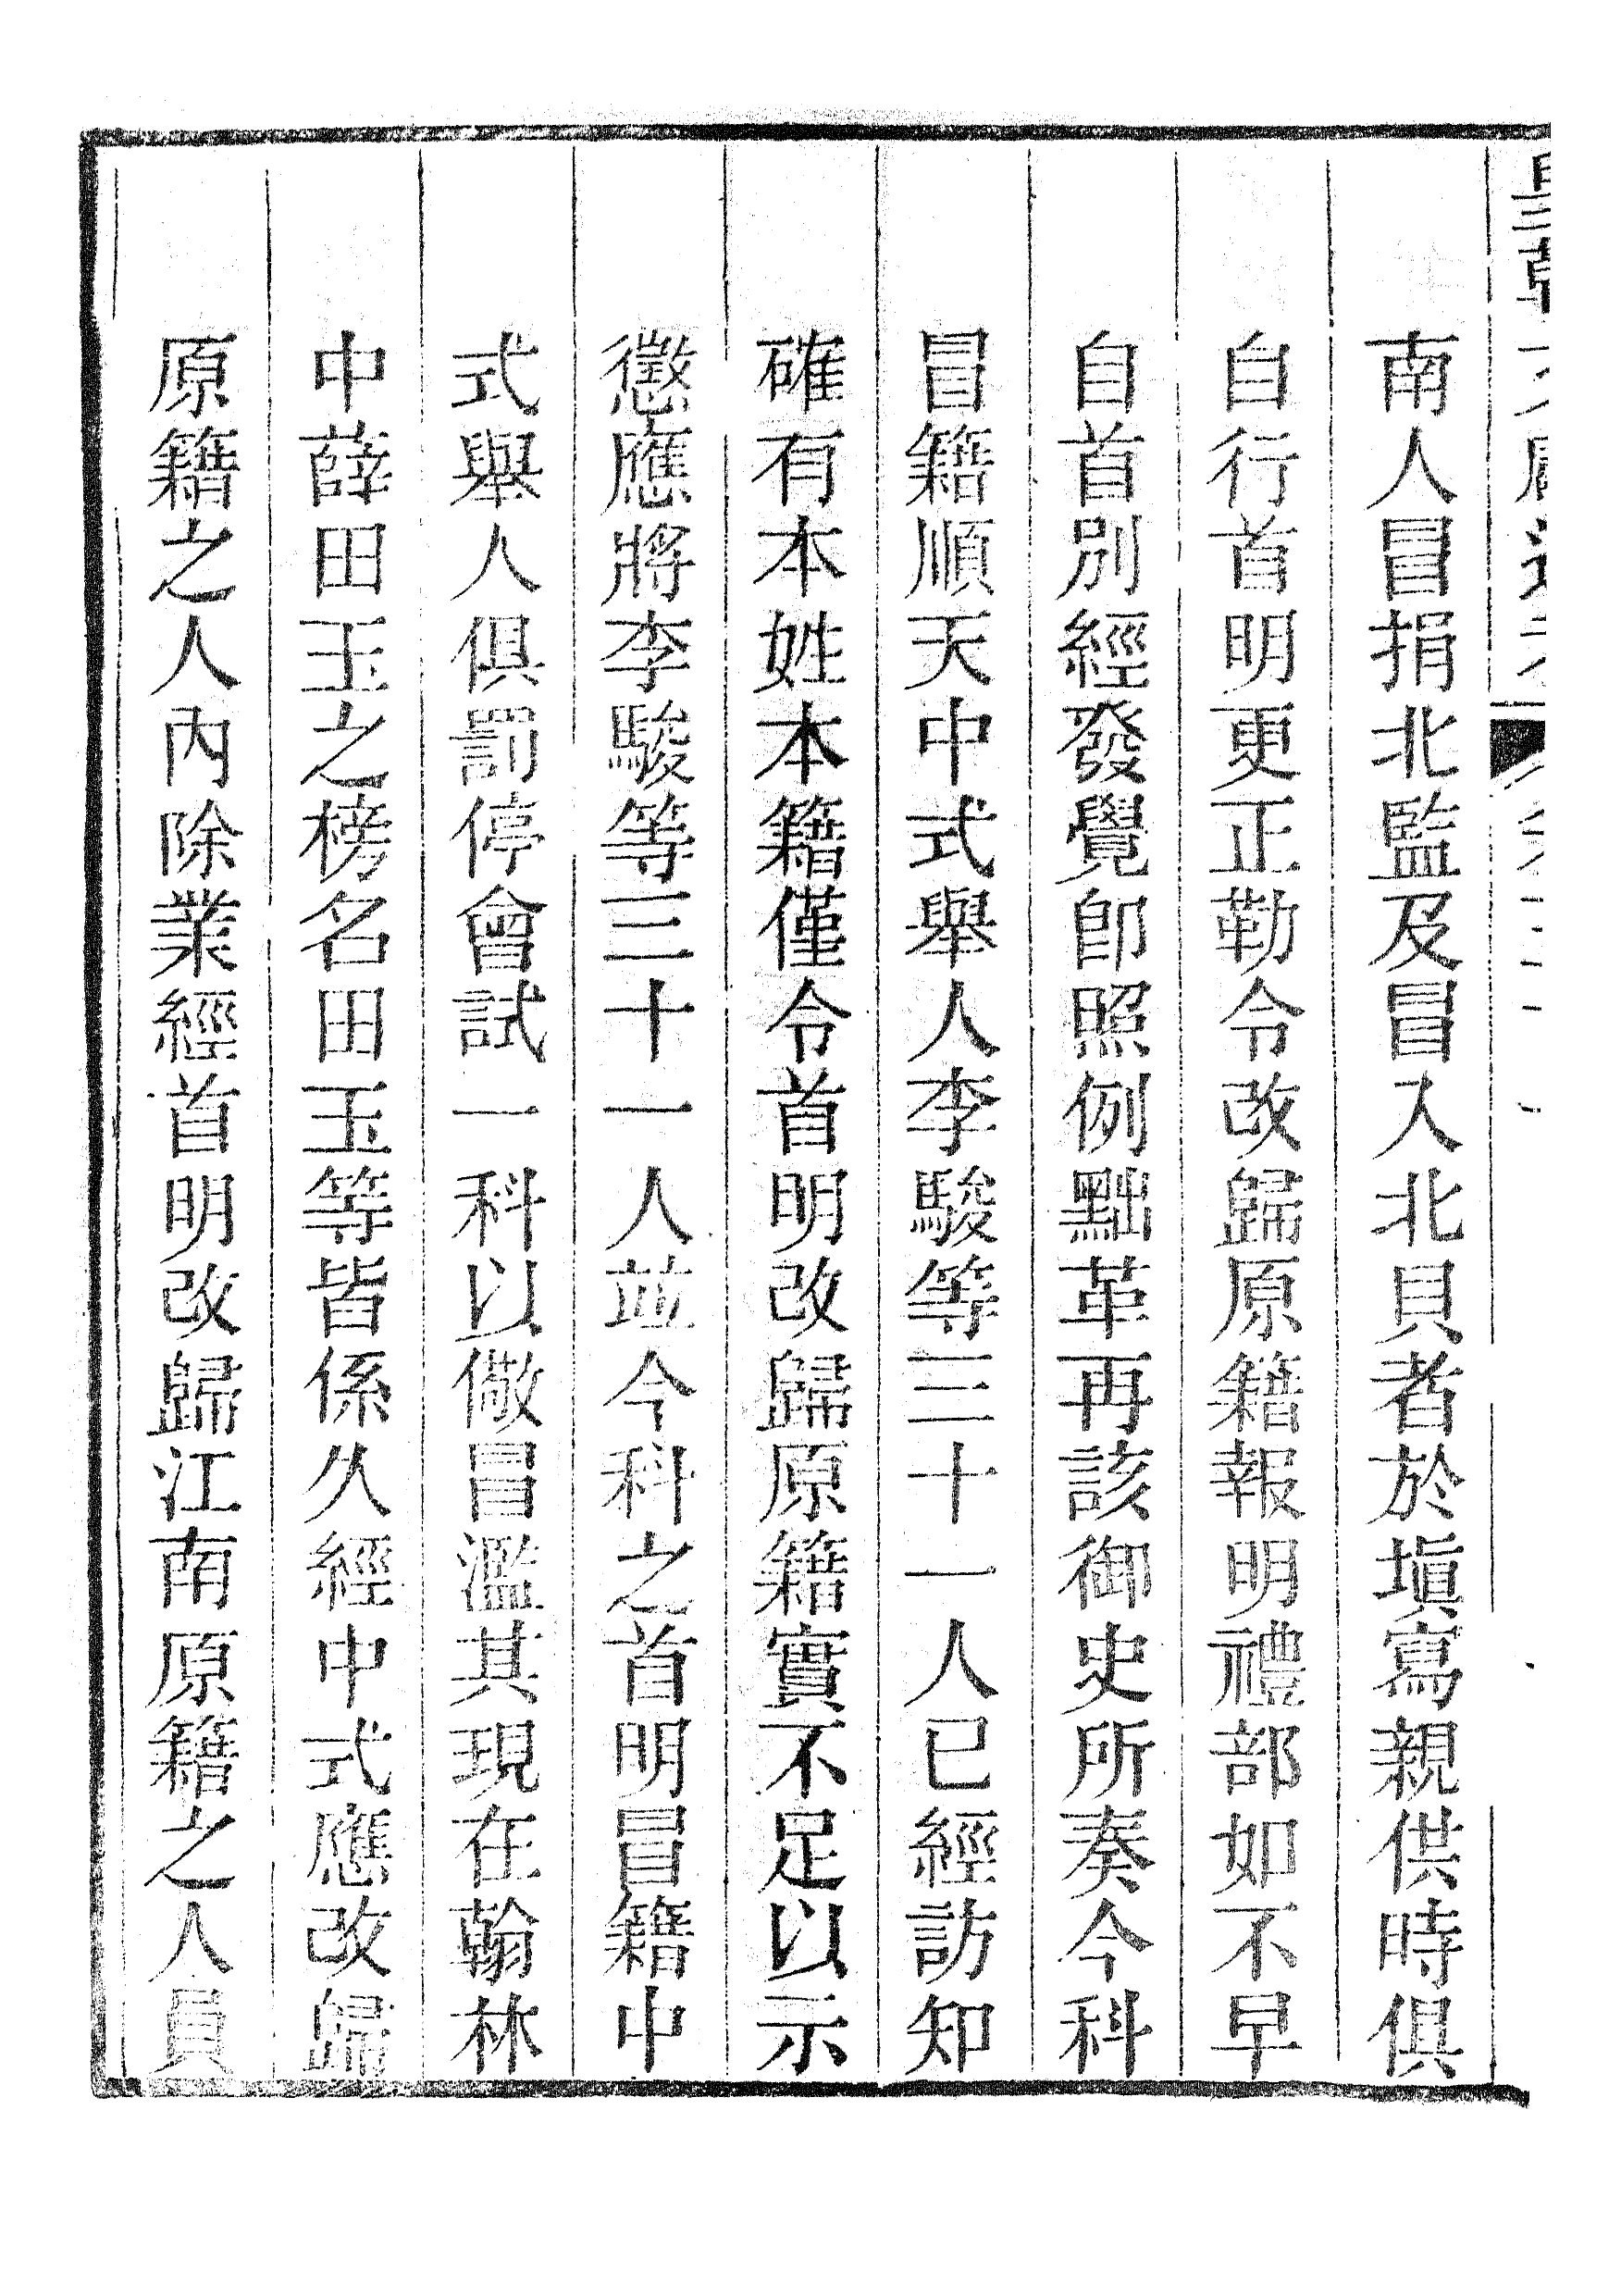 南人冒捐北監及冒入北貝者於塡寫親供時俱
自行首明更正勒令改歸原籍報明禮部如不早
自首別經發覺卽照例黜革再該御史所奏今科
冒籍順天中式舉人李駿等三十一人已經訪知
確有本姓本籍僅令首明改歸原籍實不足以示
懲應將李駿等三十一人並今科之首明冒籍中
式舉人俱罰停會試一科以儆冒濫其現在翰林
中薛田玉之榜名田玉等皆係久經中式應改歸
原籍之人內除業經首明改歸江南原籍之人員